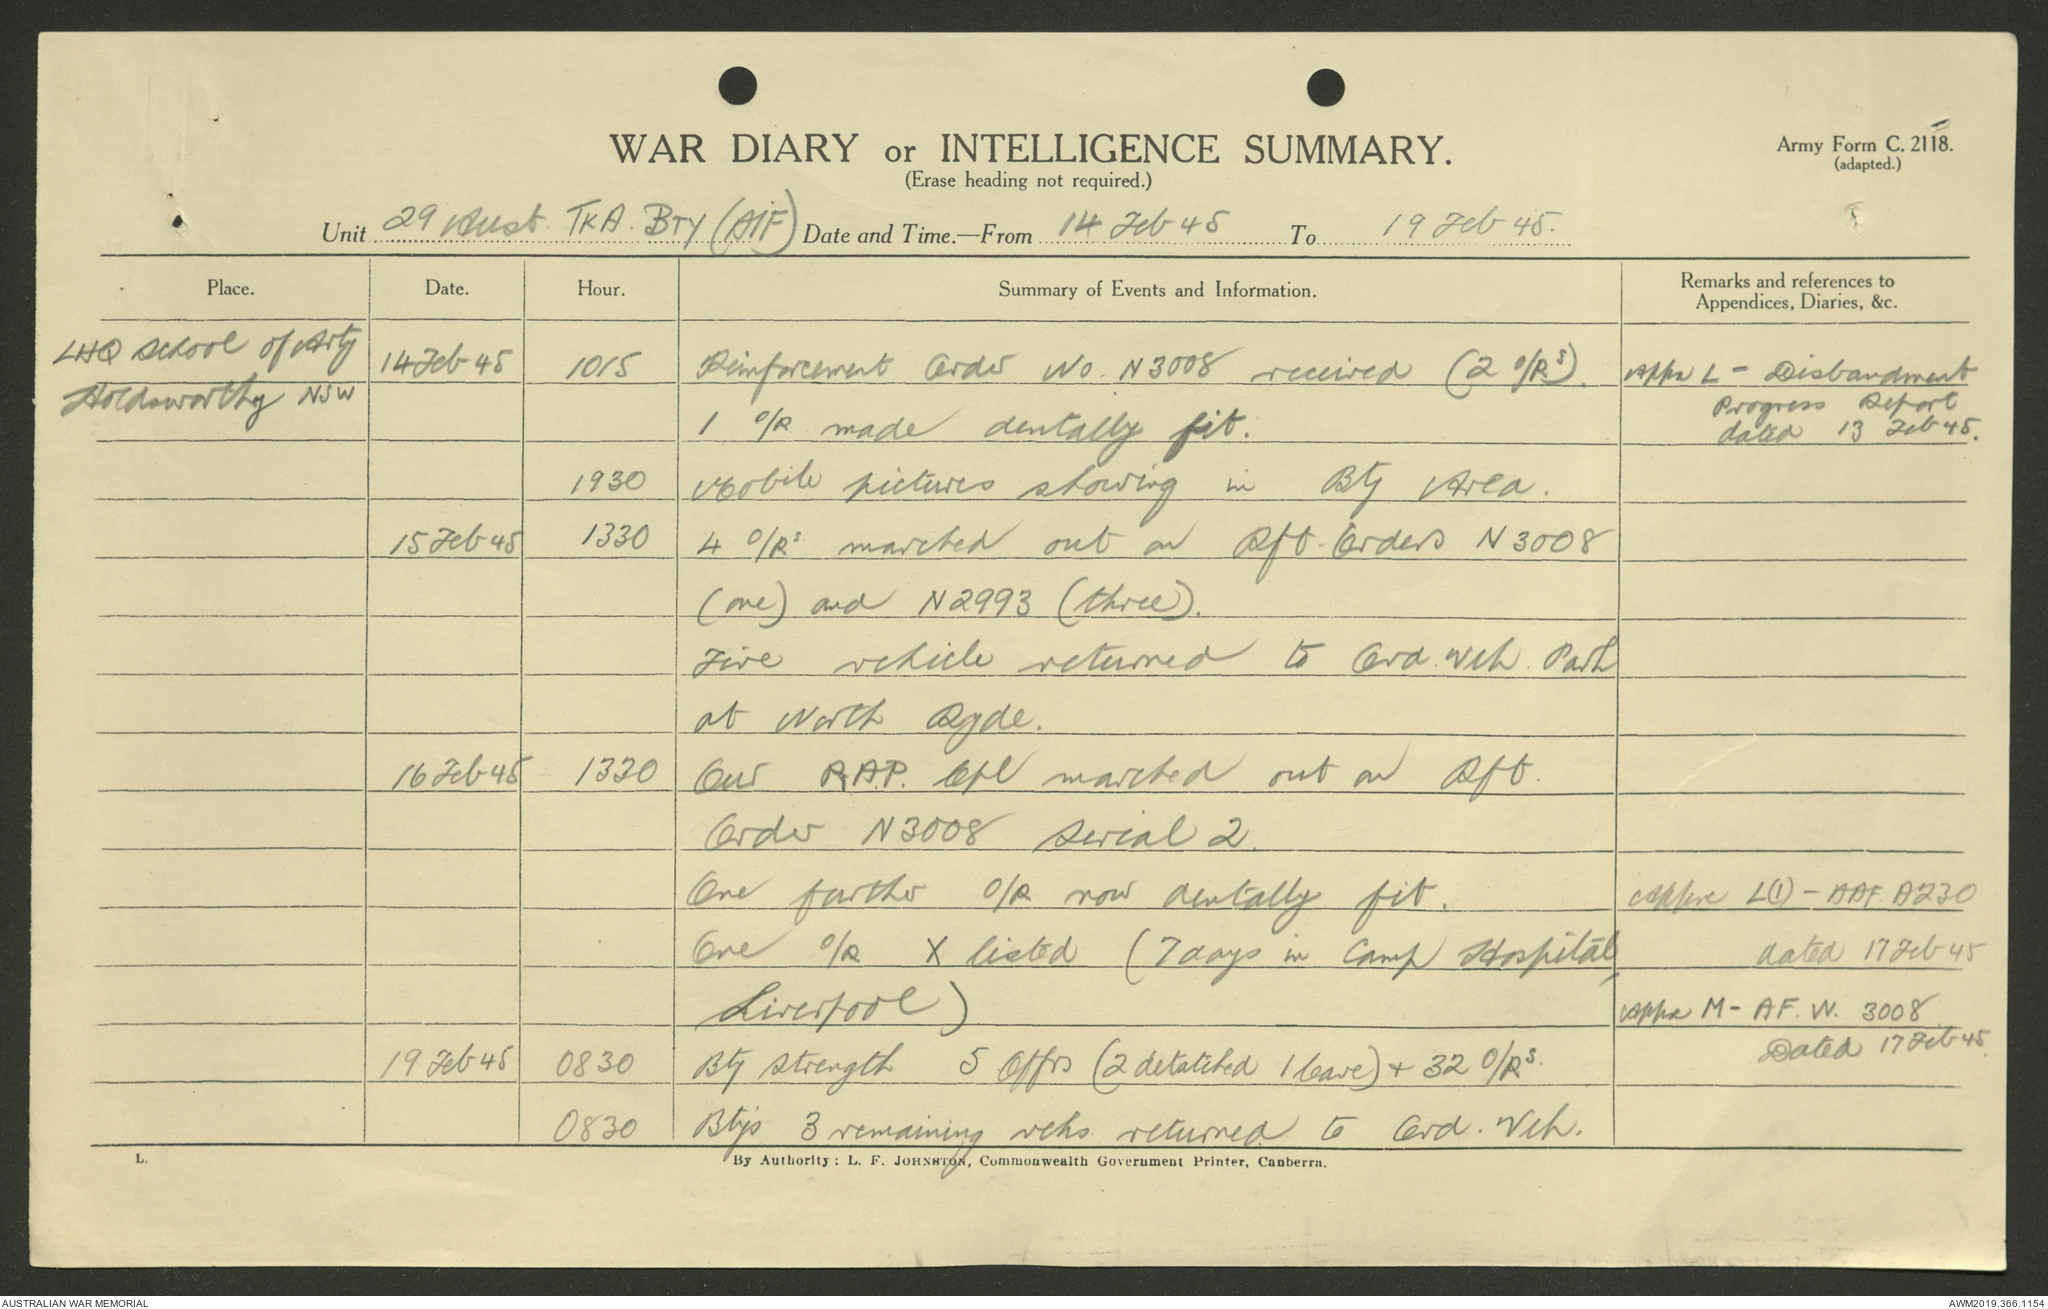 WAR DIARY or INTELLIGENCE SUMMARY.
(Erase heading not required.)
Army Form C. 2118.
(adapted.)
Unit 29 Aust. TkA. Bty (AIF) Date and Time.—From 14 Feb 45 To 19 Feb 45.
Place. Date. Hour. Summary of Events and Information. Remarks and references to Appendices, Diaries, &c.
LHQ School of Arty
Holdsworthy NSW
14 Feb 45 1015 Reinforcement Order No. N3008 received (2 O/Rs). Appx L - Disbandment
Progress Report
dated 13 Feb 45.
1 O/R made dentally fit.
1930 Mobile pictures showing in Bty Area.
15 Feb 45 1330 4 O/Rs marched out on Rft. Orders N3008
(one) and N2993 (three).
Five vehicle returned to Ord. Veh. Park
at North Ryde.
16 Feb 45 1330 Our R.A.P. Cpl marched out on Rft.
Order N3008 Serial 2.
One further O/R now dentally fit. Appx L(1) - AAF. A230
One O/R X listed (7 days in Camp Hospital, dated 17 Feb 45
Liverpool) Appx M - AF. W. 3008
Dated 17 Feb 45.
19 Feb 45 0830 Bty Strength 5 Offrs (2 detatched 1 leave) + 32 O/Rs.
0830 Btys 3 remaining vehs returned to Ord. Veh.
L.
By Authority: L. F. JOHNSTON, Commonwealth Government Printer, Canberra.
AUSTRALIAN WAR MEMORIAL
AWM2019.366.1154